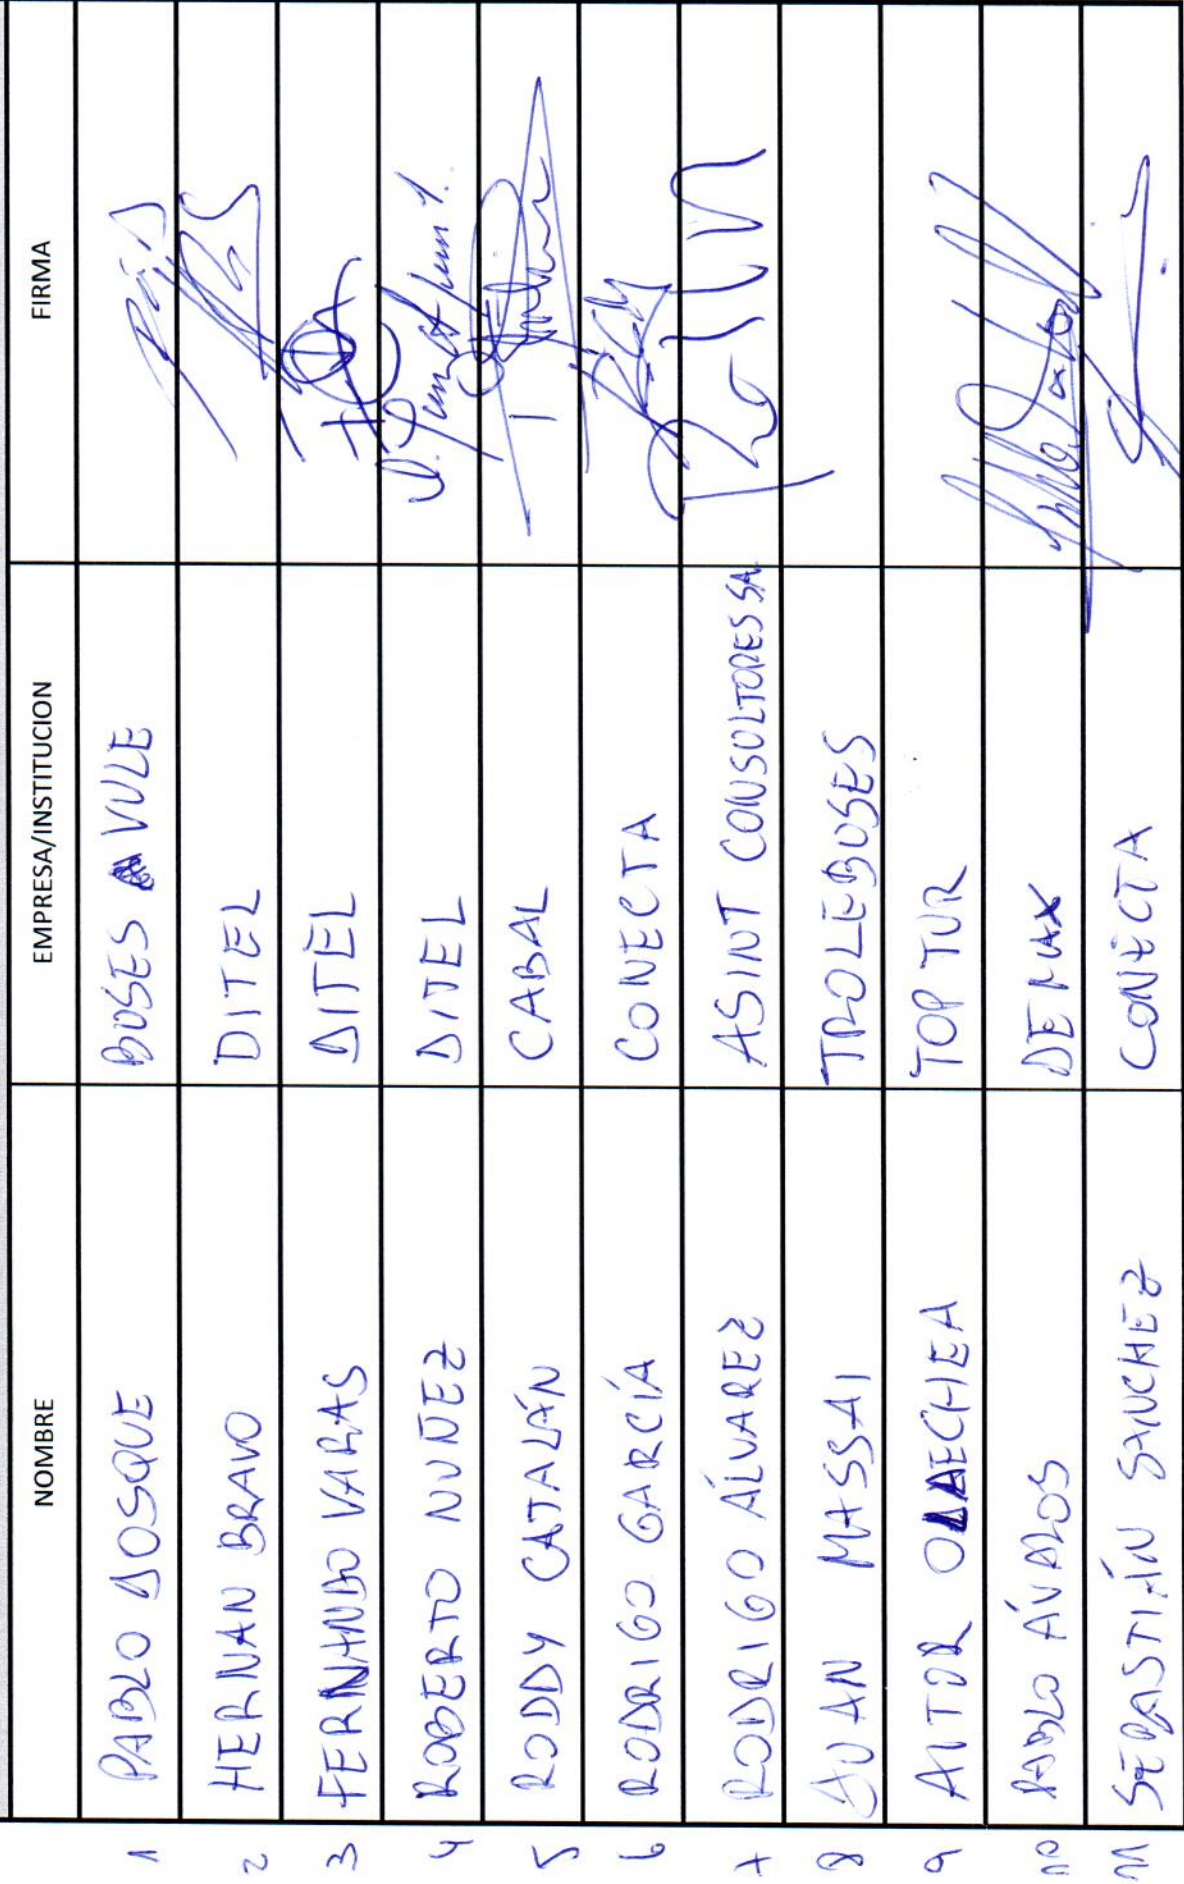 NOMBRE EMPRESA/INSTITUCION FIRMA
1 PABLO DOSQUE BUSES VULE
2 HERNAN BRAVO DITEL
3 FERNANDO VARAS DITEL
4 ROBERTO NUÑEZ DITEL
5 RODDY CATALÁN CABAL
6 RODRIGO GARCÍA CONECTA
7 RODRIGO ÁLVAREZ ASINT CONSULTORES SA
8 JUAN MASSAI TROLEBUSES
9 AITOR OLAECHEA TOP TUR
10 PABLO ÁVALOS DEMAX
11 SEBASTIÁN SANCHEZ CONECTA